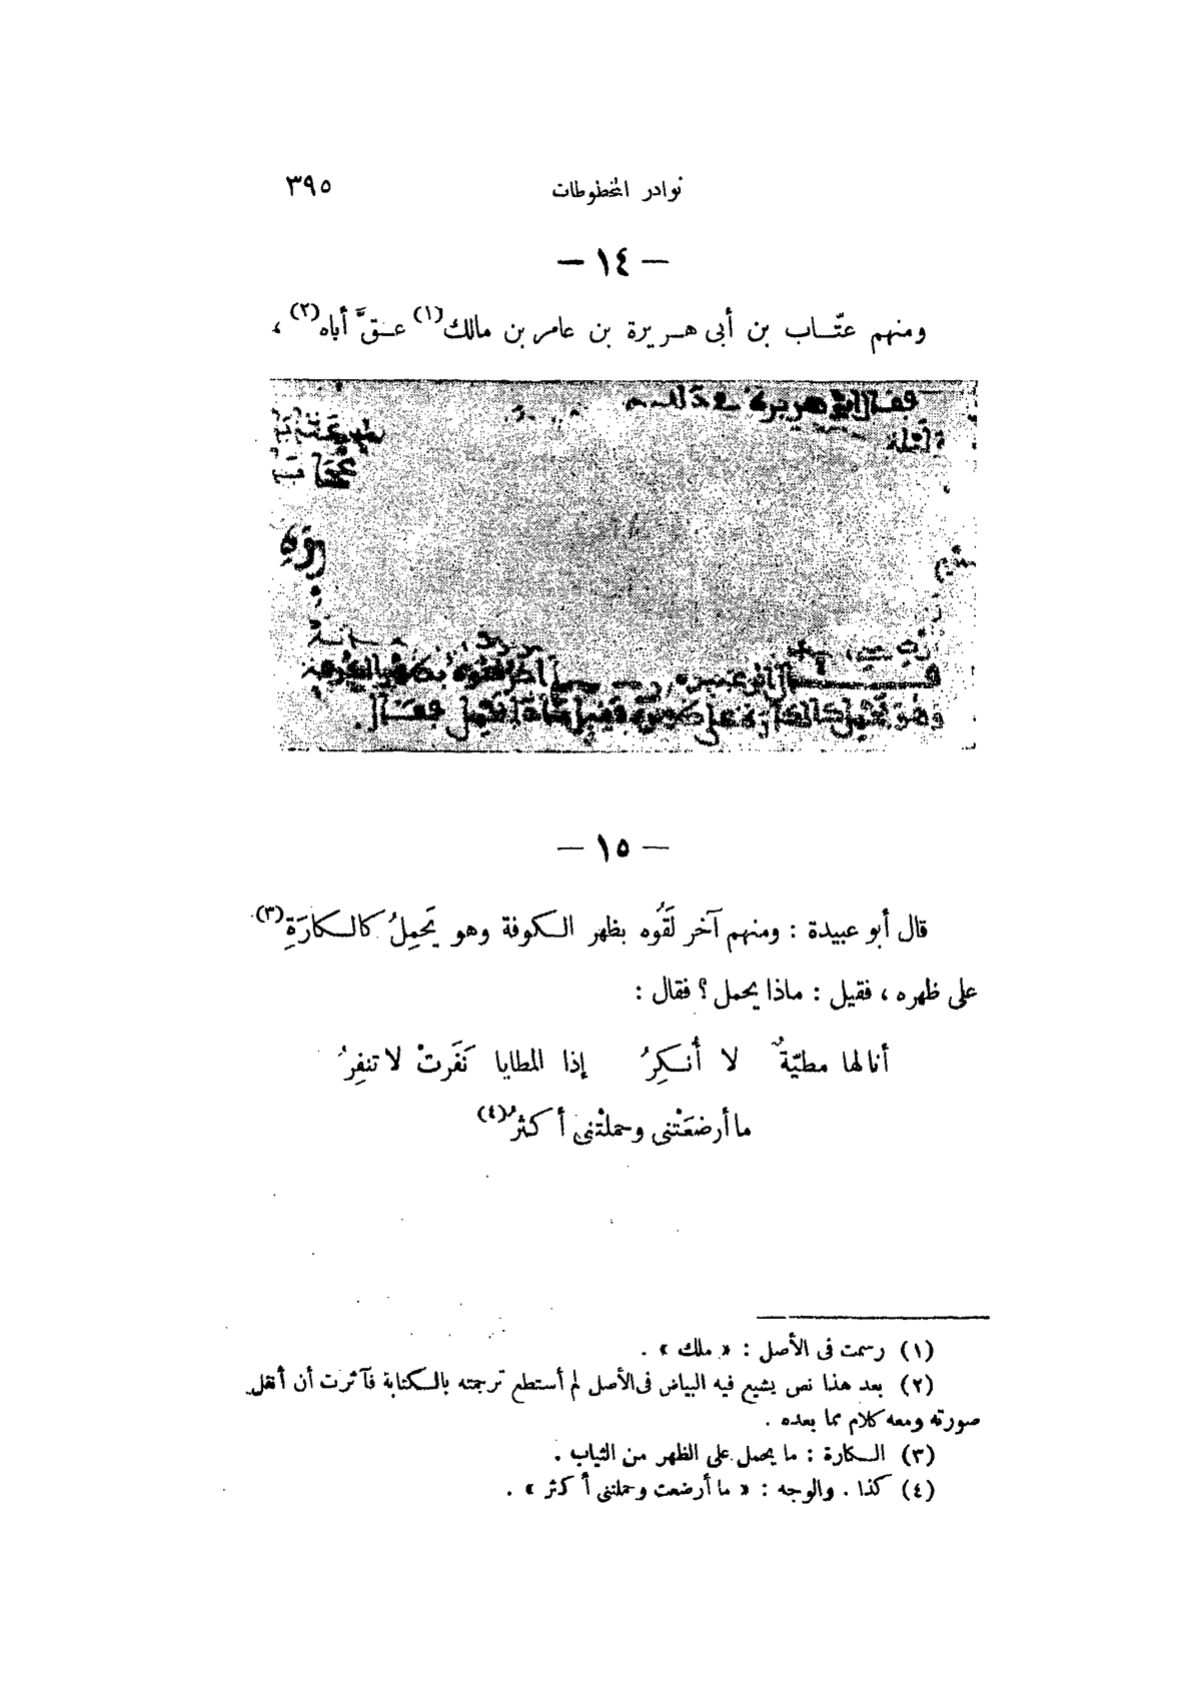 نوادر المخطوطات ٣٩٥
— ١٤ —
ومنهم عتّاب بن أبى هريرة بن عامر بن مالك(١) عقَّ أباه(٢) ،
فقال أبو هريرة فى ذلك
وهو يحمل كالكارة على ظهره فقيل ماذا تحمل فقال .
— ١٥ —
قال أبو عبيدة : ومنهم آخر لَقُوه بظهر الكوفة وهو يَحمِلُ كالكارَةِ(٣)
على ظهره ، فقيل : ماذا يحمل ؟ فقال :
أنا لها مطيّةٌ لا أُنكِرُ إذا المطايا نَفَرتْ لا تنفِرُ
ما أرضعَتْنى وحملتْنى أكثرُ(٤)
(١) رسمت فى الأصل : « ملك » .
(٢) بعد هذا نص يشيع فيه البياض فى الأصل لم أستطع ترجمته بالكتابة فآثرت أن أنقل
صورته ومعه كلام مما بعده .
(٣) الكارة : ما يحمل على الظهر من الثياب .
(٤) كذا . والوجه : « ما أرضعت وحملتنى أكثر » .